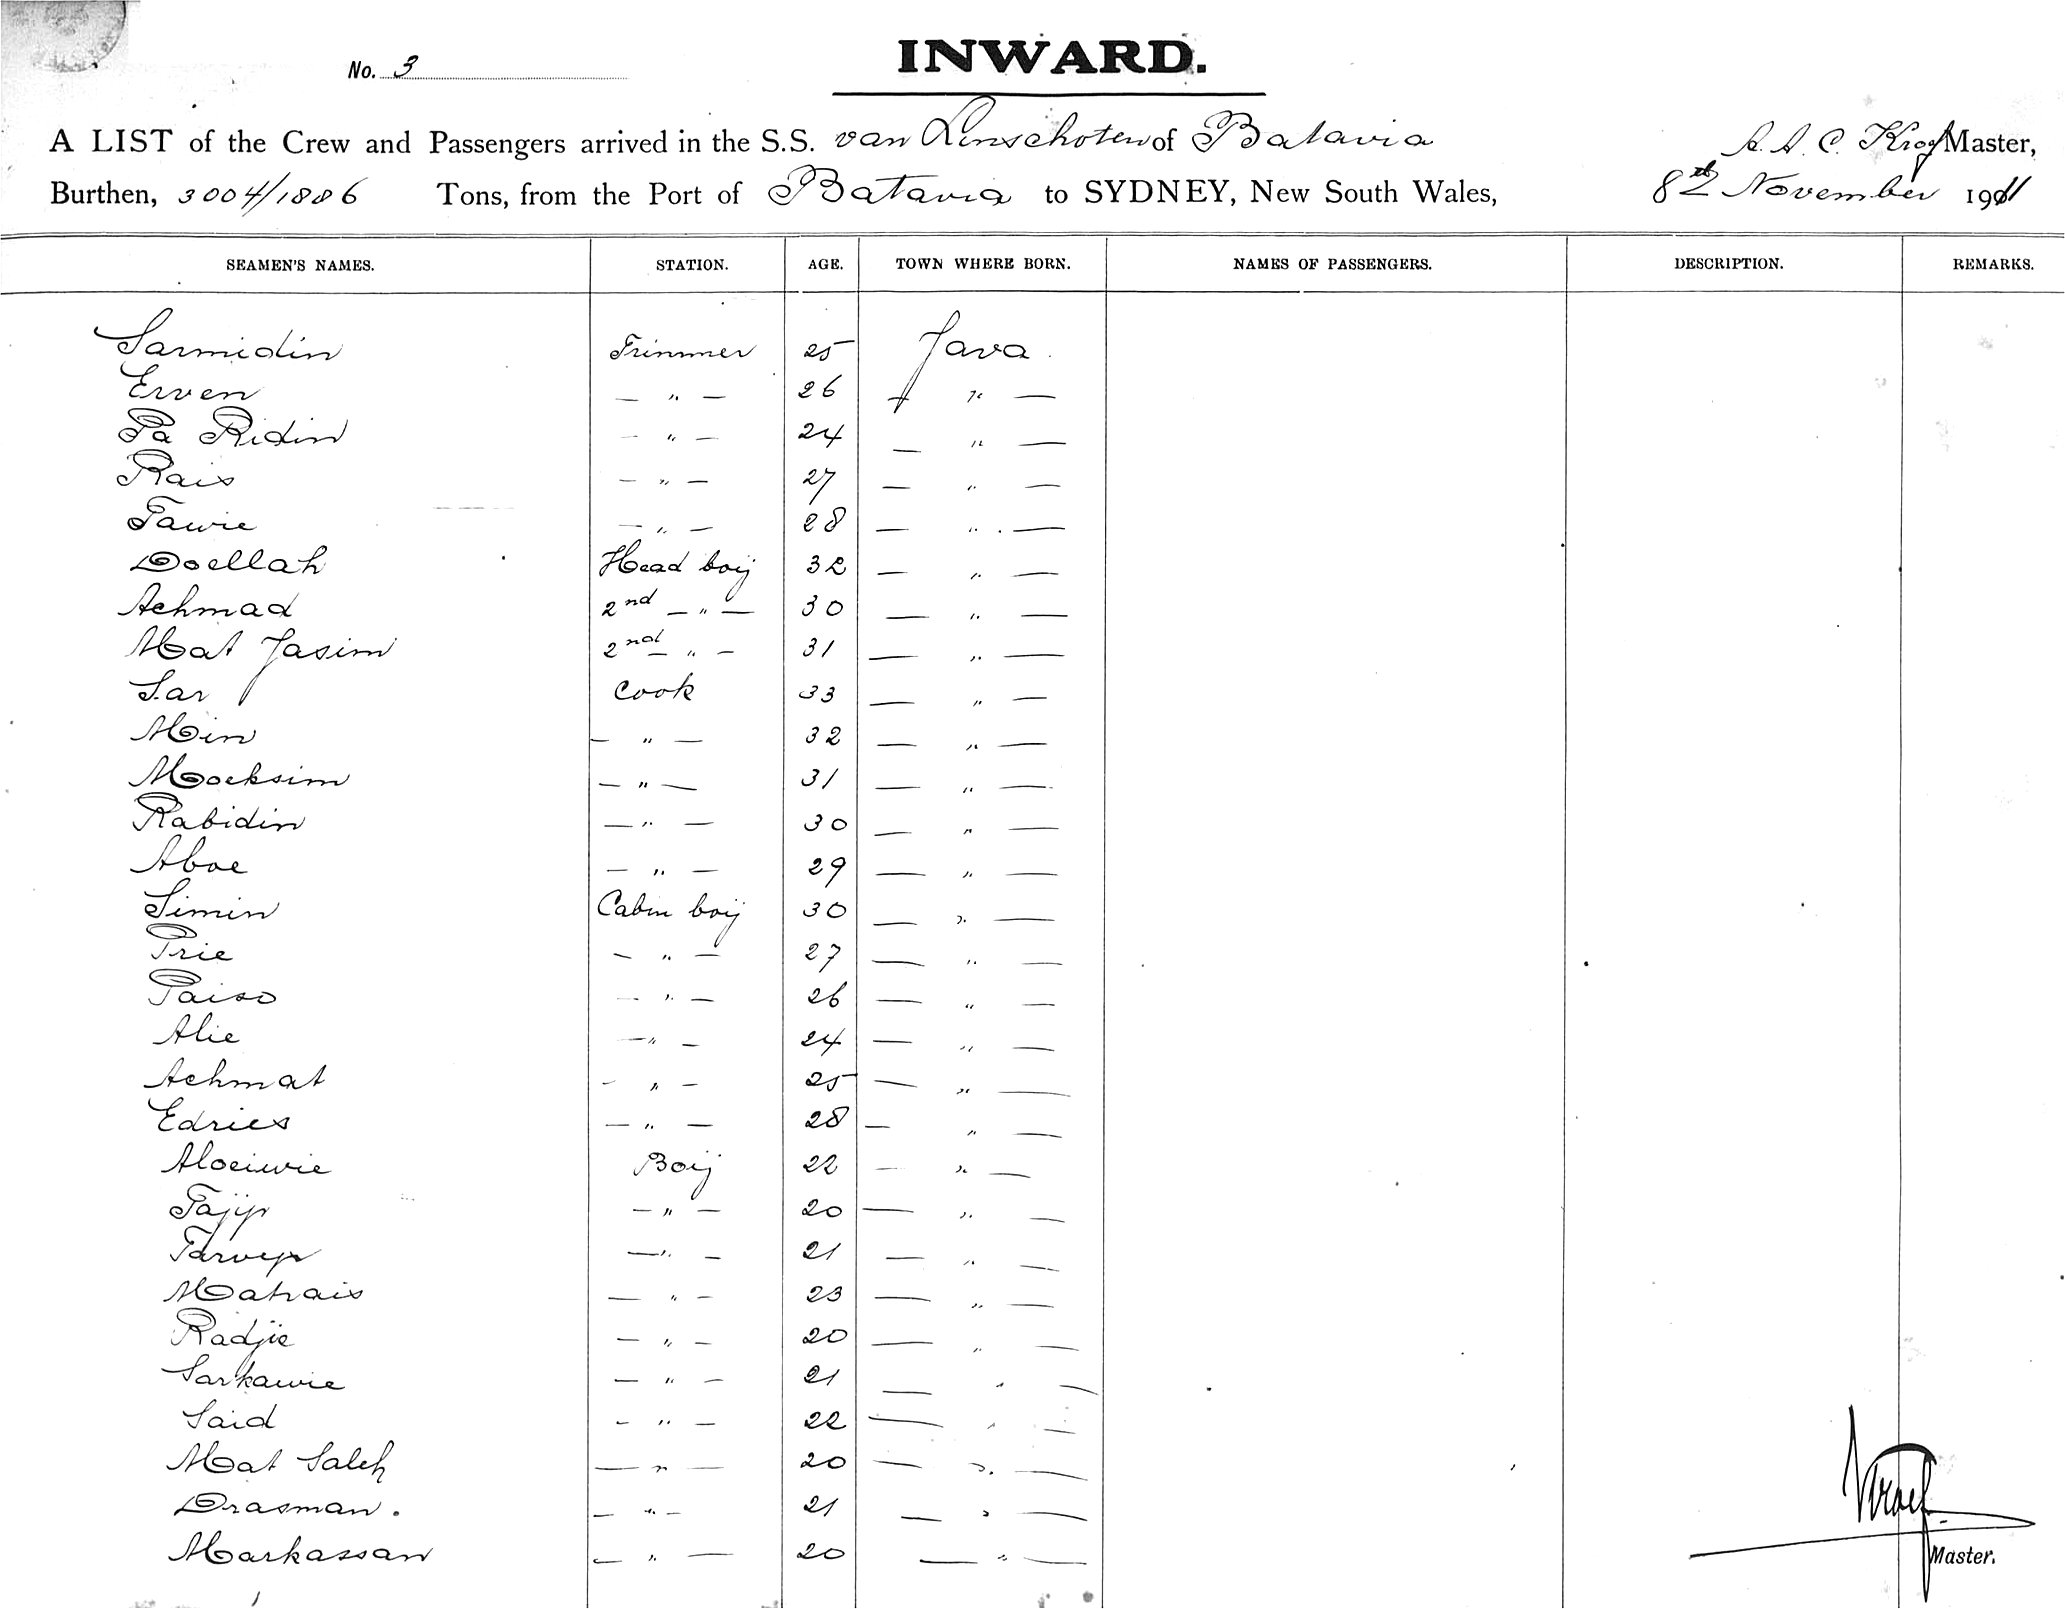 No. 3
INWARD.
A LIST of the Crew and Passengers arrived in the S.S. van Linschoten of Batavia A. A. C. Kroef Master,
Burthen, 3004/1886 Tons, from the Port of Batavia to SYDNEY, New South Wales, 8th November 1911
SEAMEN'S NAMES. STATION. AGE. TOWN WHERE BORN. NAMES OF PASSENGERS. DESCRIPTION. REMARKS.
Sarmidin Trimmer 25 Java.
Erven — " — 26 — " —
Pa Ridin — " — 24 — " —
Rais — " — 27 — " —
Tawie — " — 28 — " —
Doellah Head boij 32 — " —
Achmad 2nd — " — 30 — " —
Mat Jasim 2nd — " — 31 — " —
Sar Cook 33 — " —
Min — " — 32 — " —
Moeksim — " — 31 — " —
Rabidin — " — 30 — " —
Aboe — " — 29 — " —
Simin Cabin boij 30 — " —
Prie — " — 27 — " —
Paiso — " — 26 — " —
Alie — " — 24 — " —
Achmat — " — 25 — " —
Edries — " — 28 — " —
Aloeiwie Boij 22 — " —
Tajip — " — 20 — " —
— " — 21 — " —
Matrais — " — 23 — " —
Radjie — " — 20 — " —
Sarkawie — " — 21 — " —
Said — " — 22 — " —
Mat Saleh — " — 20 — " —
Drasman. — " — 21 — " —
Markassan — " — 20 — " —
Kroef
Master.